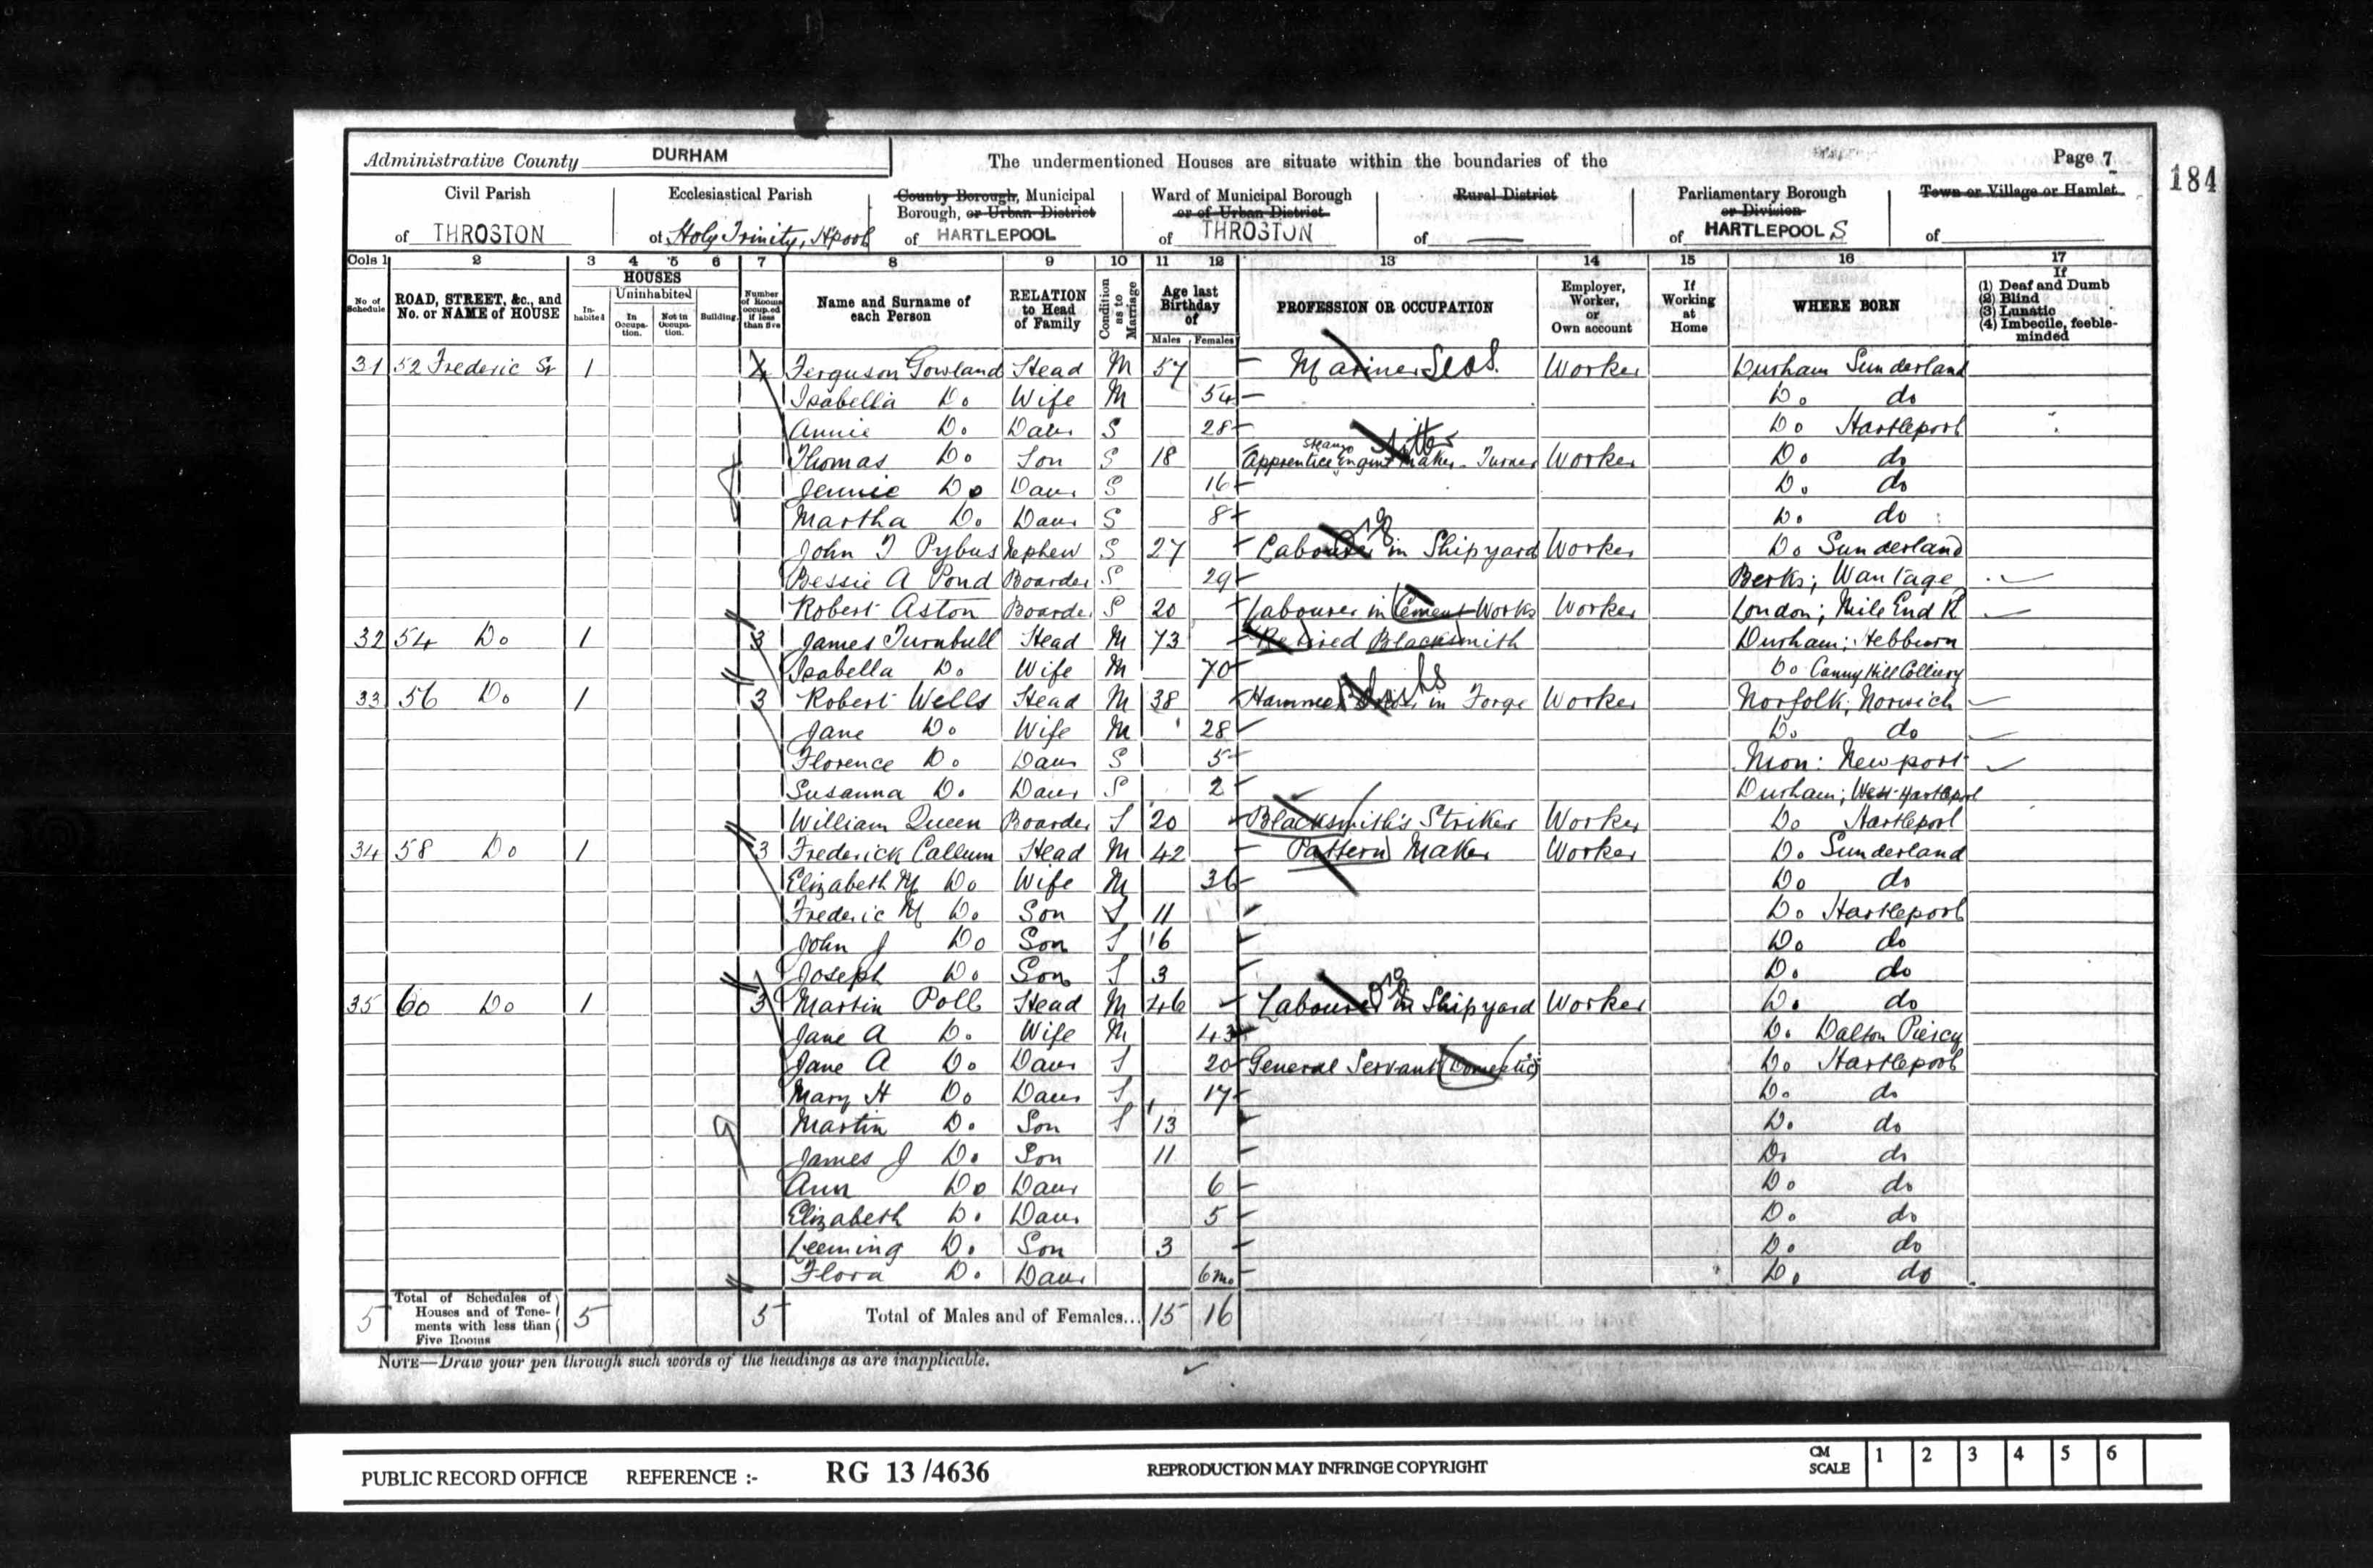 Administrative County DURHAM The undermentioned Houses are situate within the boundaries of the Page 7
184
Civil Parish Ecclesiastical Parish County Borough, Municipal Ward of Municipal Borough Rural District Parliamentary Borough Town or Village or Hamlet
Borough, or Urban District or of Urban District or Division
of THROSTON of Holy Trinity, H'pool of HARTLEPOOL of THROSTON of of HARTLEPOOLS of
Cols 1 2 3 4 5 6 7 8 9 10 11 12 13 14 15 16 17
No of Schedule ROAD, STREET, &c., and No. or NAME of HOUSE HOUSES Inhabited Uninhabited In Occupation. Not in Occupation. Building. Number of Rooms occupied if less than five Name and Surname of each Person RELATION to Head of Family Condition as to Marriage Age last Birthday of Males Females PROFESSION OR OCCUPATION Employer, Worker, or Own account If Working at Home WHERE BORN If (1) Deaf and Dumb (2) Blind (3) Lunatic (4) Imbecile, feeble-minded
31 52 Frederic St 1 4 Ferguson Gowland Head M 57 Mariner Seas. Worker Durham Sunderland
Isabella Do Wife M 54 Do do
Annie Do Daur S 28 Do Hartlepool
Thomas Do Son S 18 Apprentice Steam Engine Maker - Turner Fitter Worker Do do
Jennie Do Daur S 16 Do do
Martha Do Daur S 8 Do do
John T Pybus Nephew S 27 Labourer in Shipyard Worker Do Sunderland
Bessie A Pond Boarder S 29 Berks; Wantage
Robert Aston Boarder S 20 Labourer in Cement Works Worker London; Mile End R
32 54 Do 1 3 James Turnbull Head M 73 Retired Blacksmith Durham; Hebburn
Isabella Do Wife M 70 Do Canny Hill Colliery
33 56 Do 1 3 Robert Wells Head M 38 Hammer in Forge Worker Norfolk; Norwich
Jane Do Wife M 28 Do do
Florence Do Daur S 5 Mon: Newport
Susanna Do Daur S 2 Durham; West Hartlepool
William Queen Boarder S 20 Blacksmith's Striker Worker Do Hartlepool
34 58 Do 1 3 Frederick Callum Head M 42 Pattern Maker Worker Do Sunderland
Elizabeth M Do Wife M 36 Do do
Frederic M Do Son S 11 Do Hartlepool
John J Do Son S 6 Do do
Joseph Do Son S 3 Do do
35 60 Do 1 3 Martin Poll Head M 46 Labourer in Shipyard Worker Do do
Jane A Do Wife M 43 Do Dalton Piercy
Jane A Do Daur S 20 General Servant (Domestic) Do Hartlepool
Mary H Do Daur S 17 Do do
Martin Do Son S 13 Do do
James J Do Son 11 Do do
Ann Do Daur 6 Do do
Elizabeth Do Daur 5 Do do
Leeming Do Son 3 Do do
Flora Do Daur 6mo Do do
5 Total of Schedules of Houses and of Tenements with less than Five Rooms 5 5 Total of Males and of Females... 15 16
NOTE—Draw your pen through such words of the headings as are inapplicable.
PUBLIC RECORD OFFICE REFERENCE :- RG 13/4636 REPRODUCTION MAY INFRINGE COPYRIGHT CM SCALE 1 2 3 4 5 6